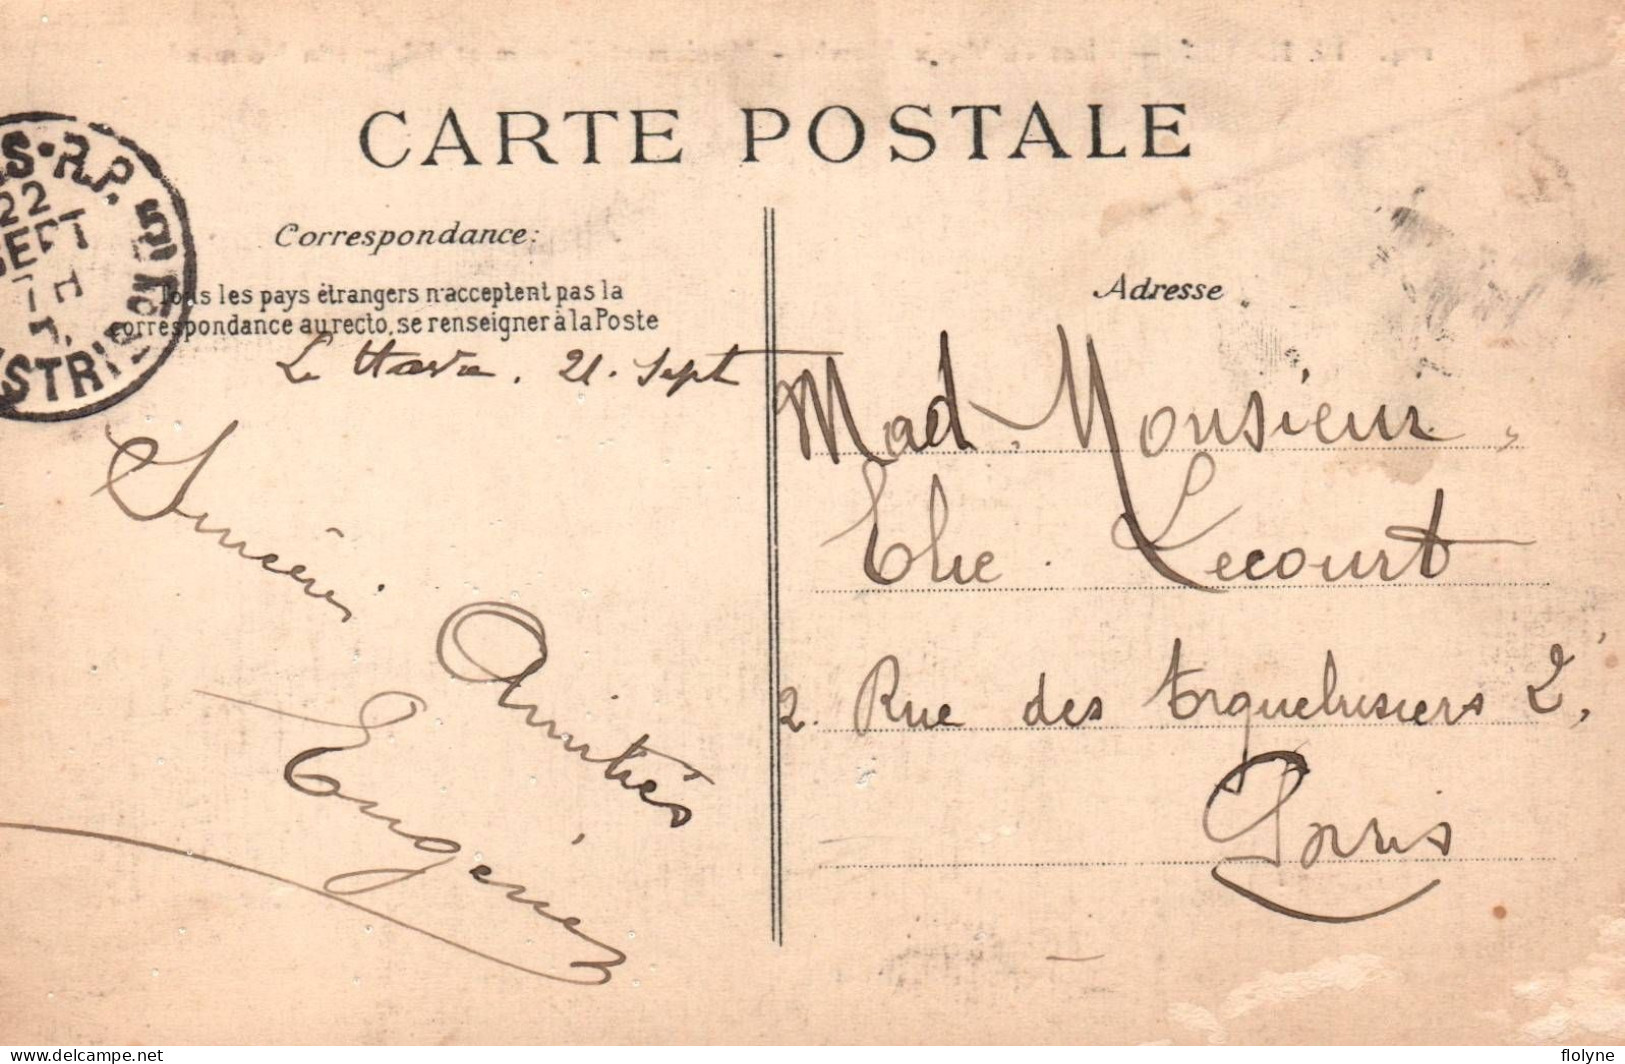 CARTE POSTALE
S·R.P.
22
SEPT
DISTRIBUTION
Correspondance:
Tous les pays étrangers n'acceptent pas la
correspondance au recto, se renseigner à la Poste
Le Havre. 21. Sept
Sincères
Amitiés
Eugénie
Adresse
Mad. Monsieur
Elie Lecourt
2. Rue des Arquebusiers 2,
Paris
delcampe.net
flolyne